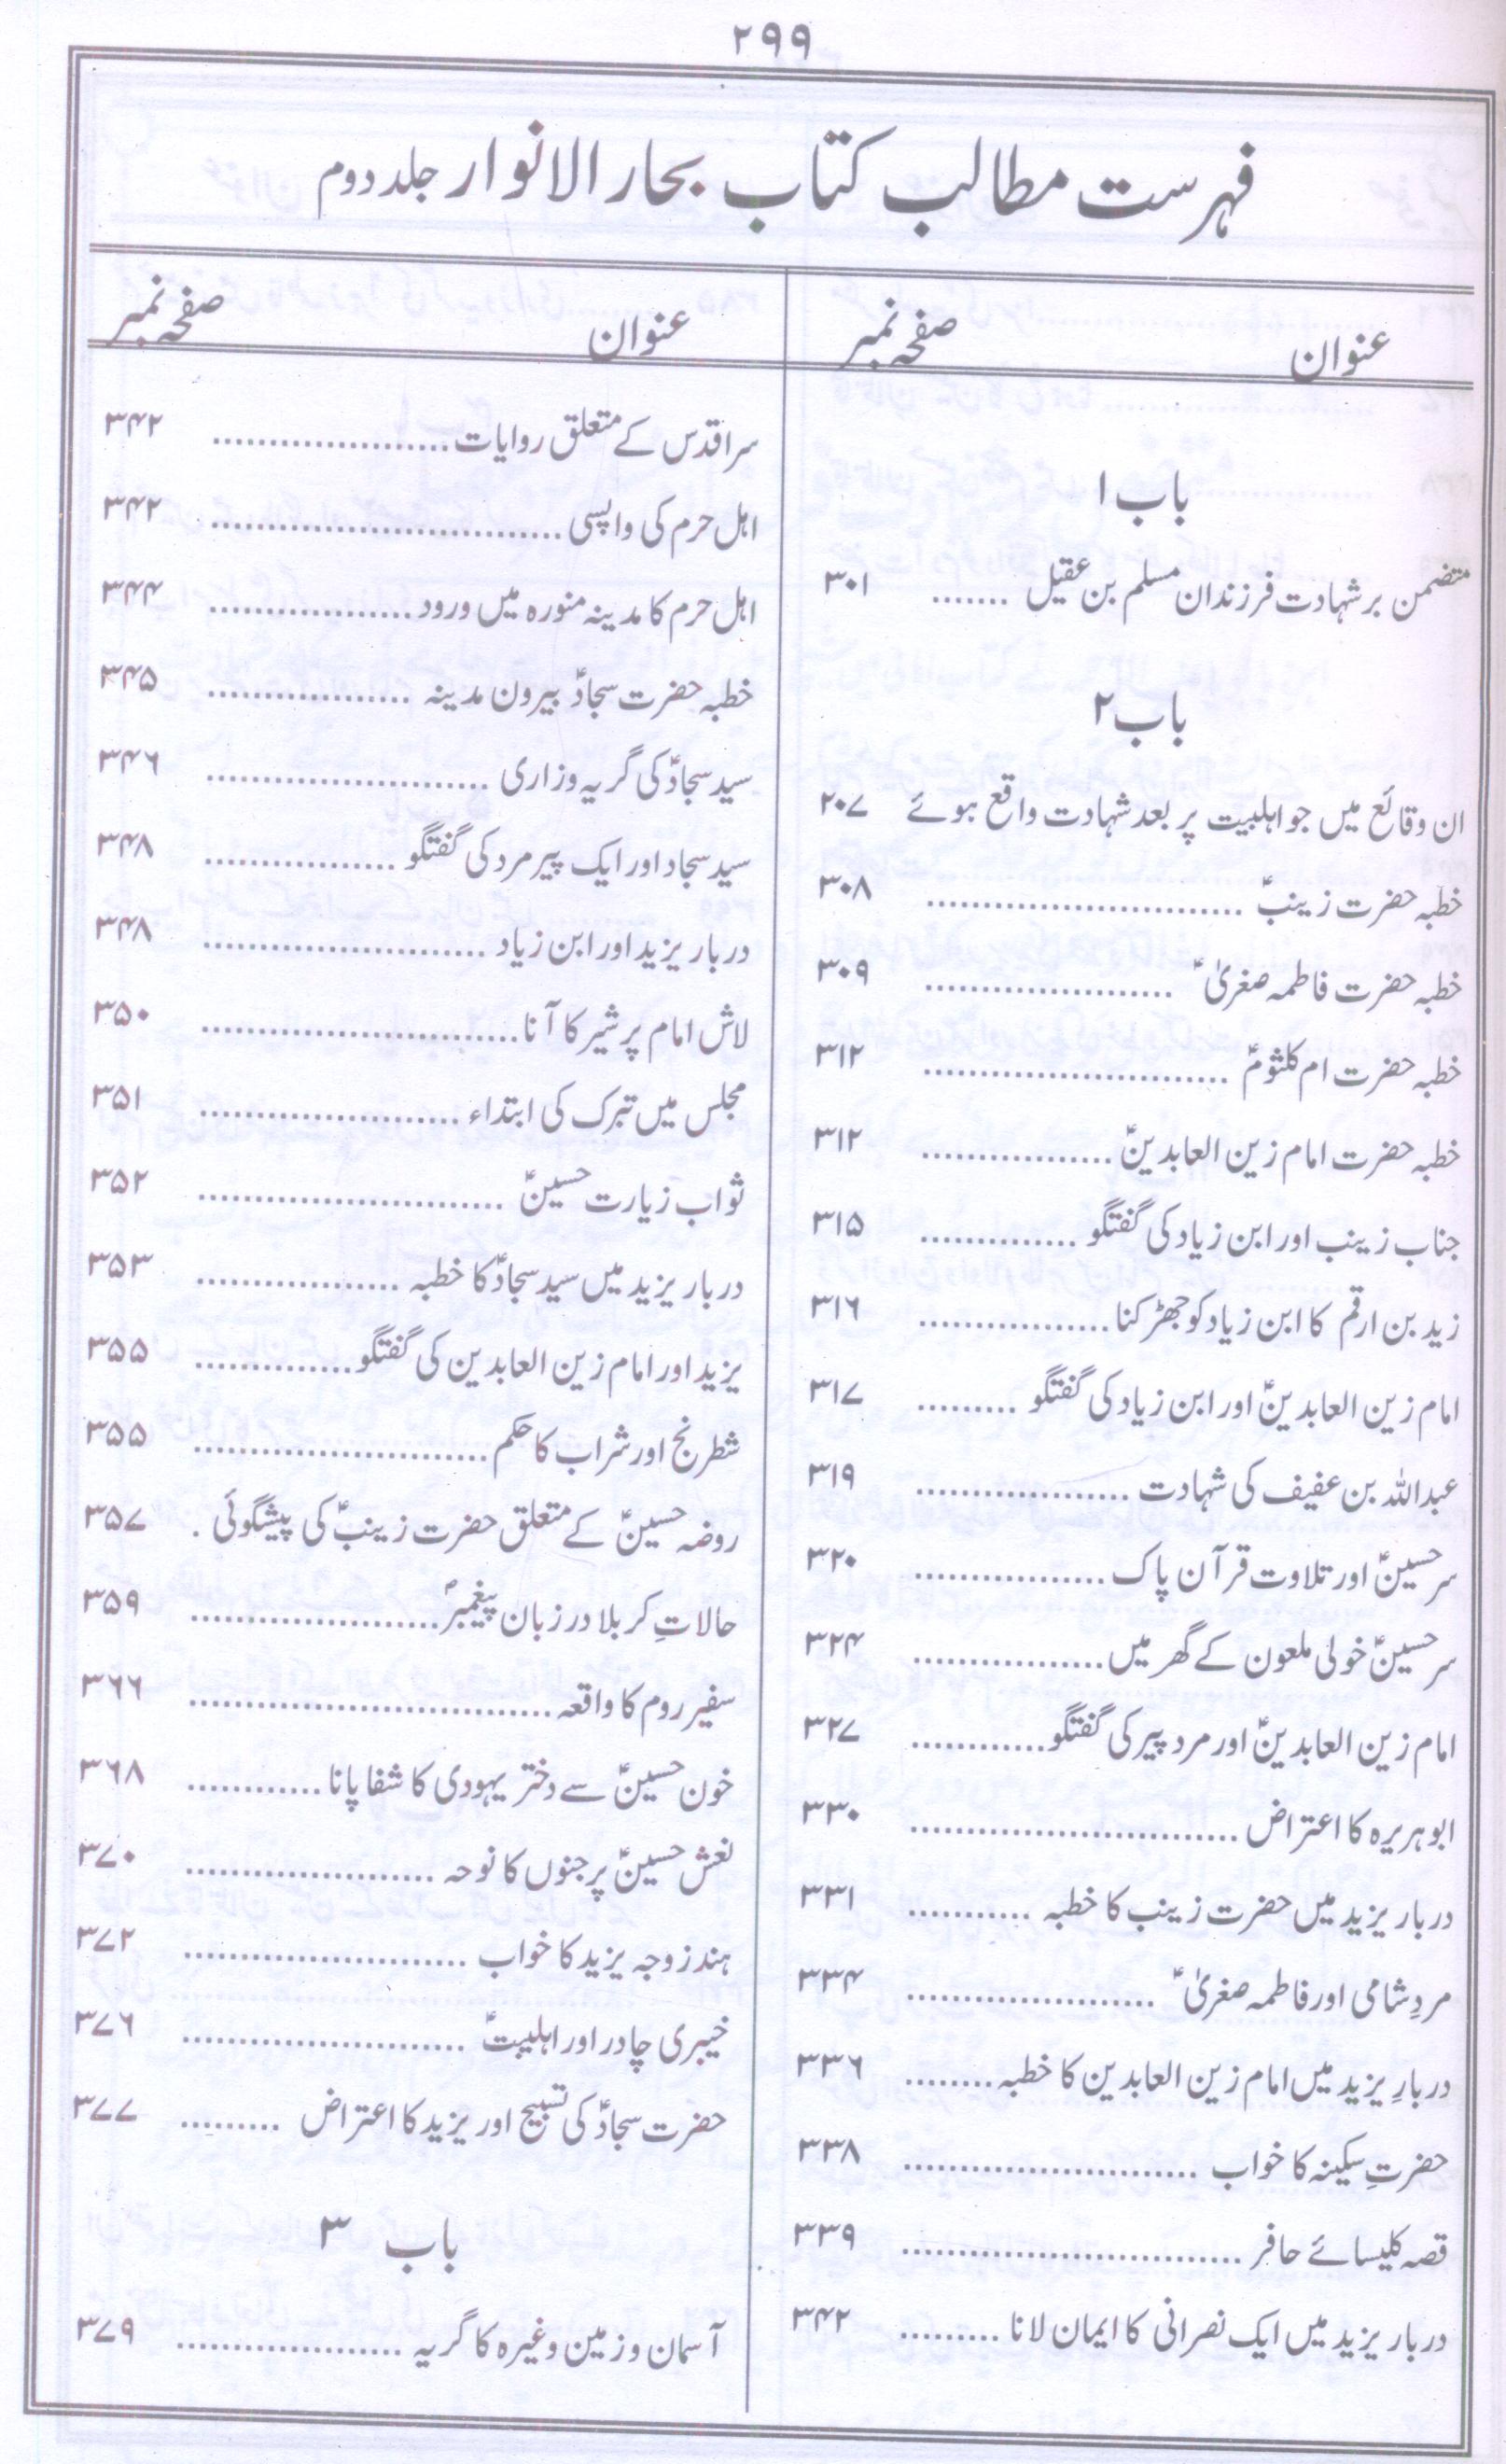 ۲۹۹
فہرست مطالب کتاب بحار الانوار جلد دوم
عنوان صفحہ نمبر
باب ۱
متضمن بر شہادت فرزندان مسلم بن عقیل ....... ۳۰۱
باب ۲
ان وقائع میں جو اہلبیت پر بعد شہادت واقع ہوئے ۲۰۷
خطبہ حضرت زینبؑ ............................ ۳۰۸
خطبہ حضرت فاطمہ صغریٰؑ ...................... ۳۰۹
خطبہ حضرت ام کلثومؑ ........................... ۳۱۲
خطبہ حضرت امام زین العابدینؑ ................. ۳۱۲
جناب زینب اور ابن زیاد کی گفتگو .............. ۳۱۵
زید بن ارقم کا ابن زیاد کو جھڑکنا ................. ۳۱۶
امام زین العابدینؑ اور ابن زیاد کی گفتگو ......... ۳۱۷
عبداللہ بن عفیف کی شہادت ................... ۳۱۹
سر حسینؑ اور تلاوت قرآن پاک ................. ۳۲۰
سر حسینؑ خولی ملعون کے گھر میں ................. ۳۲۴
امام زین العابدینؑ اور مرد پیر کی گفتگو ............ ۳۲۷
ابوہریرہ کا اعتراض ............................. ۳۳۰
دربار یزید میں حضرت زینب کا خطبہ ........... ۳۳۱
مردِ شامی اور فاطمہ صغریٰؑ ...................... ۳۳۴
دربارِ یزید میں امام زین العابدین کا خطبہ ........ ۳۳۶
حضرتِ سکینہ کا خواب .......................... ۳۳۸
قصہ کلیسائے حافر .............................. ۳۳۹
دربار یزید میں ایک نصرانی کا ایمان لانا ......... ۳۴۲
عنوان صفحہ نمبر
سر اقدس کے متعلق روایات ..................... ۳۴۲
اہل حرم کی واپسی ............................... ۳۴۲
اہل حرم کا مدینہ منورہ میں ورود .................. ۳۴۴
خطبہ حضرت سجادؑ بیرون مدینہ .................. ۳۴۵
سید سجادؑ کی گریہ وزاری ......................... ۳۴۶
سید سجاد اور ایک پیر مرد کی گفتگو ................. ۳۴۸
دربار یزید اور ابن زیاد ......................... ۳۴۸
لاش امام پر شیر کا آنا ............................ ۳۵۰
مجلس میں تبرک کی ابتداء ....................... ۳۵۱
ثواب زیارت حسینؑ ........................... ۳۵۲
دربار یزید میں سید سجادؑ کا خطبہ .................. ۳۵۳
یزید اور امام زین العابدین کی گفتگو .............. ۳۵۵
شطرنج اور شراب کا حکم .......................... ۳۵۵
روضہ حسینؑ کے متعلق حضرت زینبؑ کی پیشگوئی . ۳۵۷
حالاتِ کربلا در زبان پیغمبرؐ ...................... ۳۵۹
سفیر روم کا واقعہ ................................ ۳۶۶
خون حسینؑ سے دختر یہودی کا شفا پانا ............ ۳۶۸
نعش حسینؑ پر جنوں کا نوحہ ...................... ۳۷۰
ہند زوجہ یزید کا خواب ......................... ۳۷۲
خیبری چادر اور اہلبیتؑ ......................... ۳۷۶
حضرت سجادؑ کی تسبیح اور یزید کا اعتراض ......... ۳۷۷
باب ۳
آسمان و زمین وغیرہ کا گریہ .................... ۳۷۹